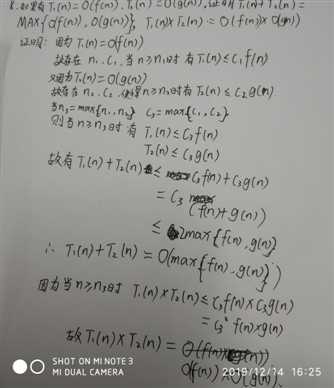 8. 如果有 T₁(n) = O(f(n)), T₂(n) = O(g(n)), 证明 T₁(n) + T₂(n) =
MAX{O(f(n)), O(g(n))}, T₁(n)×T₂(n) = O(f(n))×O(g(n))
证明: 因为 T₁(n) = O(f(n))
故存在 n₁, C₁, 当 n≥n₁时 有 T₁(n) ≤ C₁f(n)
又因为 T₂(n) = O(g(n))
故存在 n₂, C₂, 使得 n≥n₂时有 T₂(n) ≤ C₂g(n)
当n₃ = max{n₁, n₂} C₃ = max{C₁, C₂}
则当 n≥n₃时 有 T₁(n) ≤ C₃f(n)
T₂(n) ≤ C₃g(n)
故有 T₁(n) + T₂(n) ≤ C₃f(n) + C₃g(n)
= C₃ (f(n) + g(n))
≤ 2max{f(n), g(n)}
∴ T₁(n) + T₂(n) = O(max{f(n), g(n)})
因为当 n≥n₃时 T₁(n)×T₂(n) ≤ C₃f(n)×C₃g(n)
= C₃² f(n)×g(n)
故 T₁(n)×T₂(n) =
O(f(n)) × O(g(n)).
SHOT ON MI NOTE 3
MI DUAL CAMERA
2019/12/14 16:25